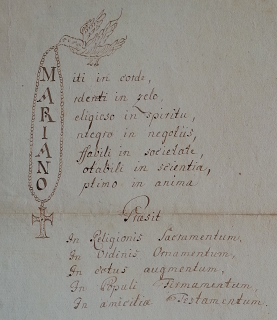 MARIANO
Miti in corde,
Ardenti in zelo,
Religioso in spiritu,
Integro in negotiis,
Affabili in societate,
Notabili in scientia,
Optimo in anima
Præsit
In Religionis Sacramentum,
In Ordinis Ornamentum,
In cœtus augmentum,
In Populi Firmamentum,
In amicitiæ Testamentum.